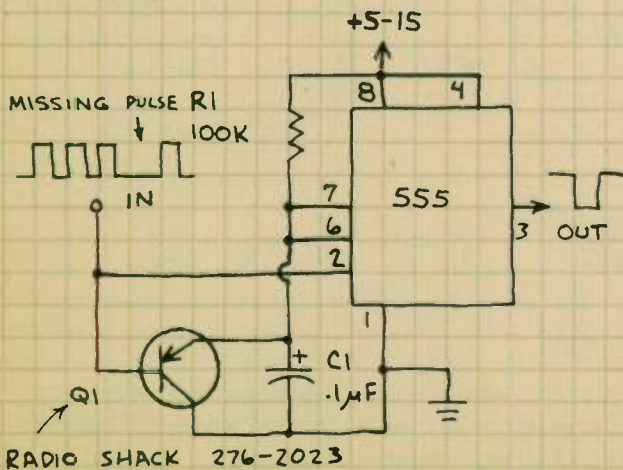 +5-15
MISSING PULSE R1
100K
IN
8
4
7
6
2
555
3
OUT
1
+
C1
.1µF
Q1
RADIO SHACK 276-2023